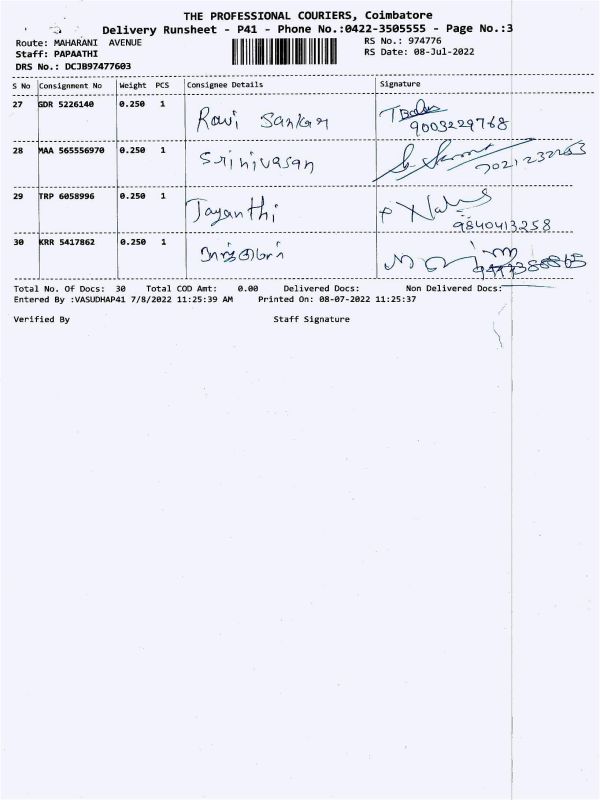 THE PROFESSIONAL COURIERS, Coimbatore
Delivery Runsheet - P41 - Phone No.:0422-3505555 - Page No.:3
Route: MAHARANI AVENUE
RS No.: 974776
Staff: PAPAATHI
RS Date: 08-Jul-2022
DRS No.: DCJB97477603
S No Consignment No Weight PCS Consignee Details Signature
27 GDR 5226140 0.250 1 Ravi Sankar
9003229768
28 MAA 565556970 0.250 1 Srinivasan
29 TRP 6058996 0.250 1 Jayanthi
9840413258
30 KRR 5417862 0.250 1
Total No. Of Docs: 30 Total COD Amt: 0.00 Delivered Docs: Non Delivered Docs:
Entered By :VASUDHAP41 7/8/2022 11:25:39 AM Printed On: 08-07-2022 11:25:37
Verified By Staff Signature